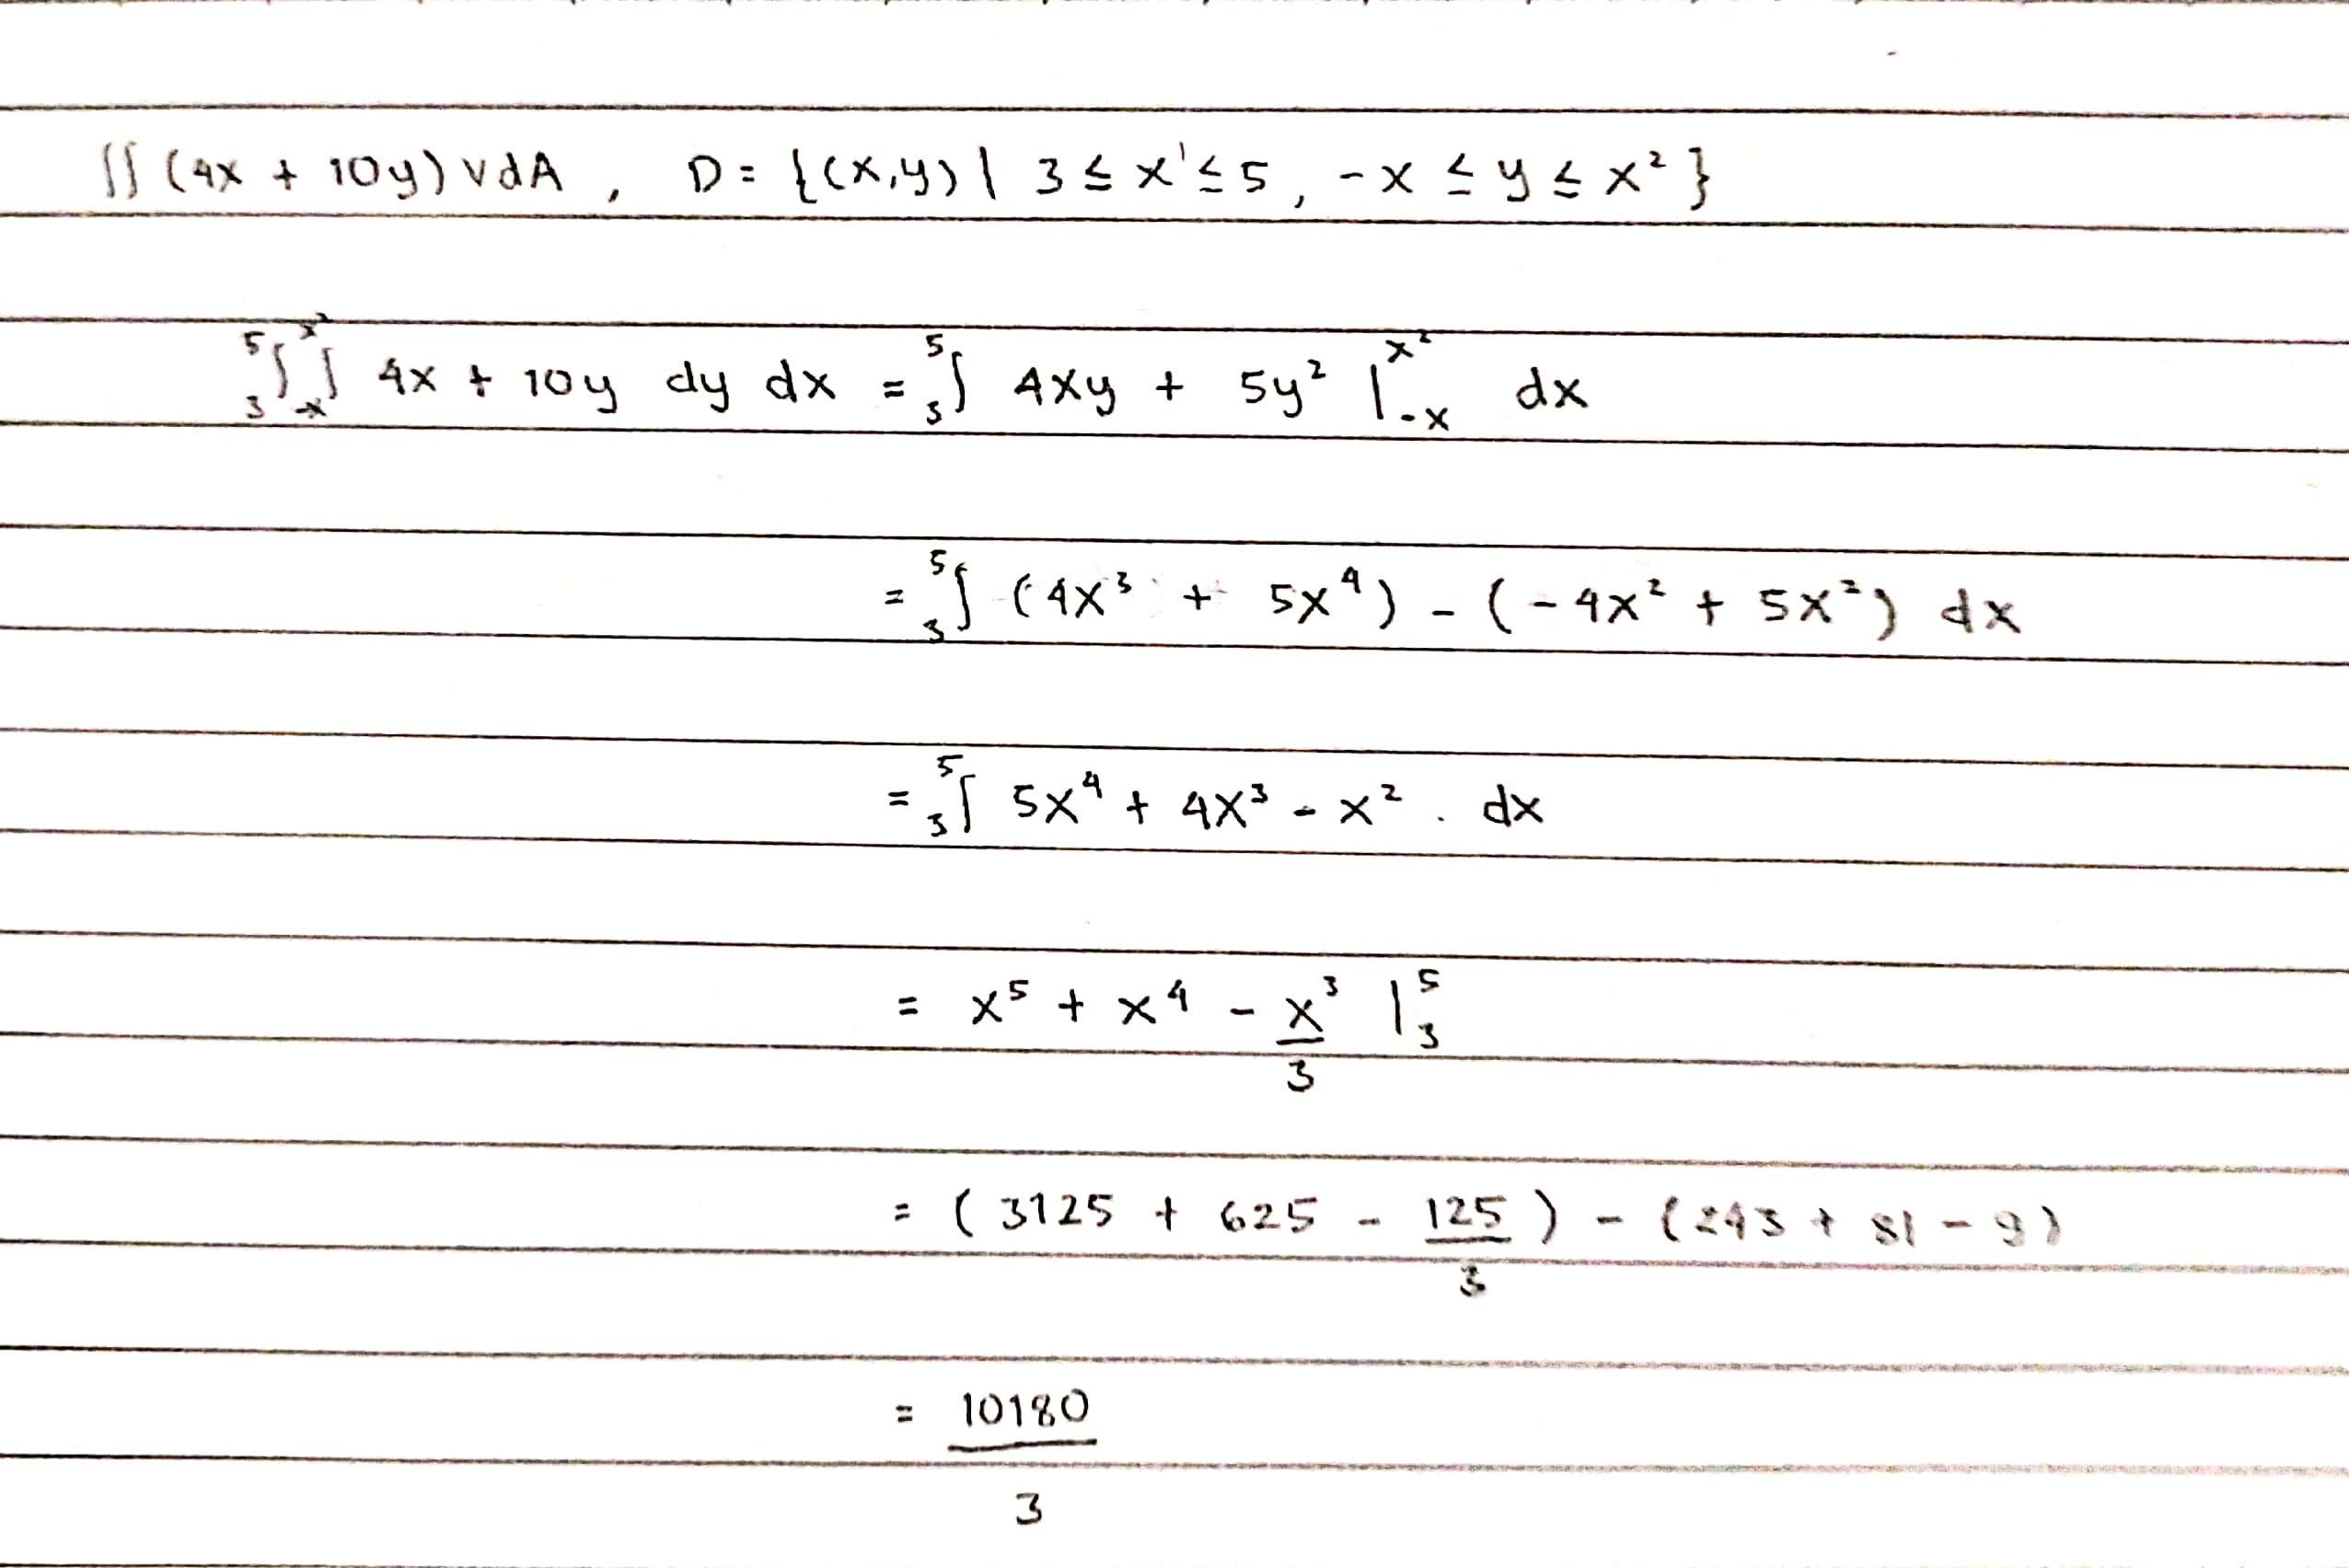 ∫∫ (4x + 10y) VdA , D = {(x,y) | 3 ≤ x' ≤ 5, -x ≤ y ≤ x²}
₃⁵∫ ₋ₓˣ²∫ 4x + 10y dy dx = ₃⁵∫ 4xy + 5y² |₋ₓˣ² dx
= ₃⁵∫ (4x³ + 5x⁴) - (-4x² + 5x²) dx
= ₃⁵∫ 5x⁴ + 4x³ - x² . dx
= x⁵ + x⁴ - x³/3 |₃⁵
= (3125 + 625 - 125/3) - (243 + 81 - 9)
= 10180/3